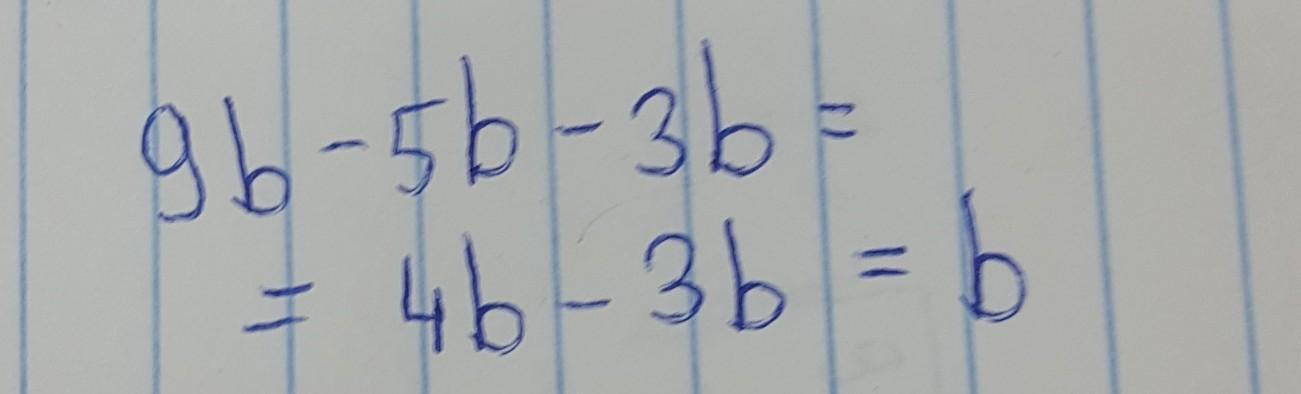 9b - 5b - 3b =
= 4b - 3b = b